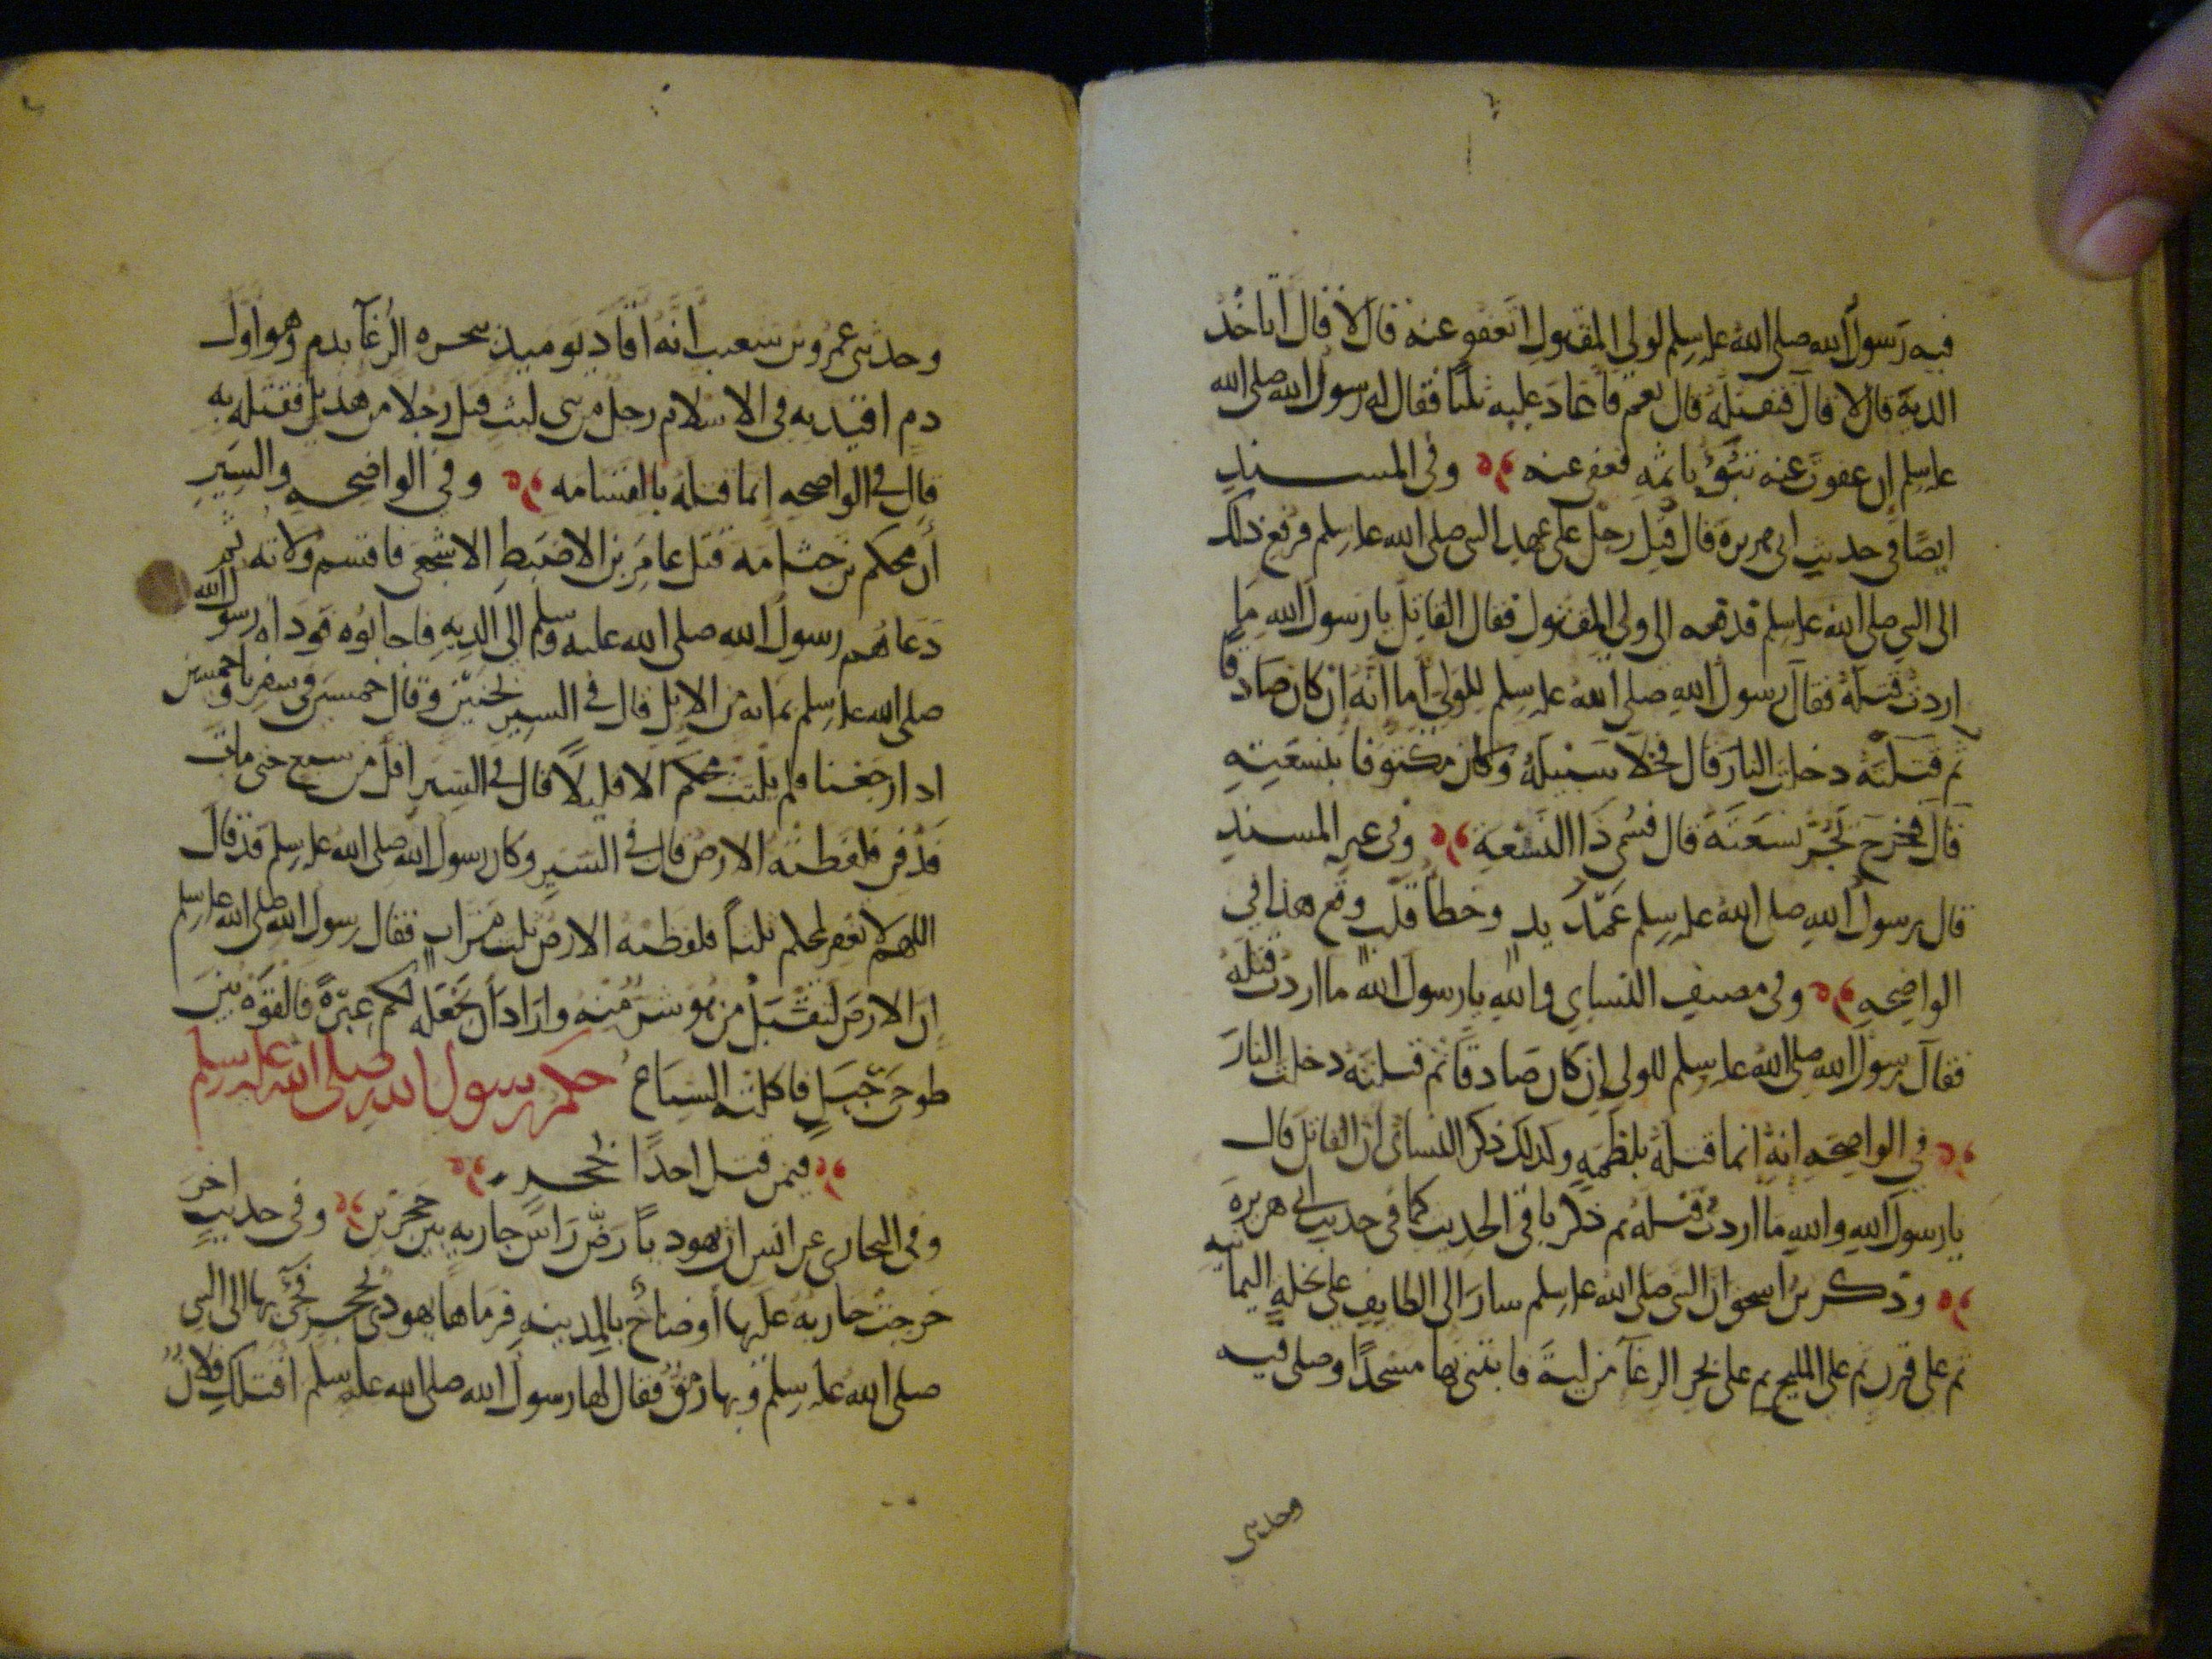 فيه رسول الله صلى الله عليه وسلم لولي المقتول اتعفو عنه قال لا قال اتاخذ
الدية قال لا قال فتقتله قال نعم فاعاد عليه ثلثا فقال له رسول الله صلى الله
عليه وسلم ان عفوت عنه تبوء باثمه فعفى عنه وفي المسند
ايضا في حديث ابي هريرة قال قتل رجل على عهد النبي صلى الله عليه وسلم فرفع ذلك
الى النبي صلى الله عليه وسلم فدفعه الى ولي المقتول فقال القاتل يا رسول الله ما
اردت قتله فقال رسول الله صلى الله عليه وسلم للولي اما انه ان كان صادقا
ثم قتلته دخلت النار قال فخلا سبيله وكان مكتوفا بنسعته
قال فخرج يجر نسعته قال فسمي ذا النسعة وفي غير المسند
قال رسول الله صلى الله عليه وسلم عمد يد وخطأ قلب وقع هذا في
الواضحه وفي مصنف النساي والله يا رسول الله ما اردت قتله
فقال رسول الله صلى الله عليه وسلم للولي ان كان صادقا ثم قتلته دخلت النار
في الواضحه انه انما قتله بلطمه وكذلك ذكر النسائي ان القاتل قال
يا رسول الله والله ما اردت قتله ثم ذكر باقي الحديث كما في حديث ابي هريرة
وذكر بن اسحق ان النبي صلى الله عليه وسلم سار الى الطايف على نخلة اليمانيه
ثم على قرن ثم على المليح ثم على بحر الرغآ من لية فابتنى بها مسجدا وصلى فيه
وحدثني
وحدثني عمرو بن شعيب انه اقاد يوميذ ببحره الرغآ بدم وهو اول
دم اقيد به في الاسلام رجل من بني ليث قتل رجلا من هذيل فقتله به
قال في الواضحه انما قتله بالقسامه وفي الواضحه والسير
أن محلم بن جثامه قتل عامر بن الاضبط الاشجعي فاقسم ولاته ثم
دعاهم رسول الله صلى الله عليه وسلم الى الديه فاجابوه فوداه رسول الله
صلى الله عليه وسلم بمائه من الابل قال في السير بحنين وقال خمسين في سفرنا وخمسين
اذا رجعنا فلم يلبث محلم الا قليلا قال في السير اقل من سبع حتى مات
فدفن فلفظته الارض قال في السير وكان رسول الله صلى الله عليه وسلم قد قال
اللهم لا تغفر لمحلم ثلثا فلفظته الارض ثلث مرات فقال رسول الله صلى الله عليه وسلم
ان الارض لتقبل من هو شر منه واراد أن يجعله لكم عبرة فالقوه بين
ضوجى جبل فاكلته السباع حكم رسول الله صلى الله عليه وسلم
فيمن قتل احدا بحجر
وفي البخارى عن انس ان يهوديا رض راس جاريه بين حجرين وفي حديث اخر
خرجت جاريه عليها أوضاح بالمدينه فرماها يهودي بحجر فجئ بها الى النبي
صلى الله عليه وسلم وبها رمق فقال لها رسول الله صلى الله عليه وسلم اقتلك فلان